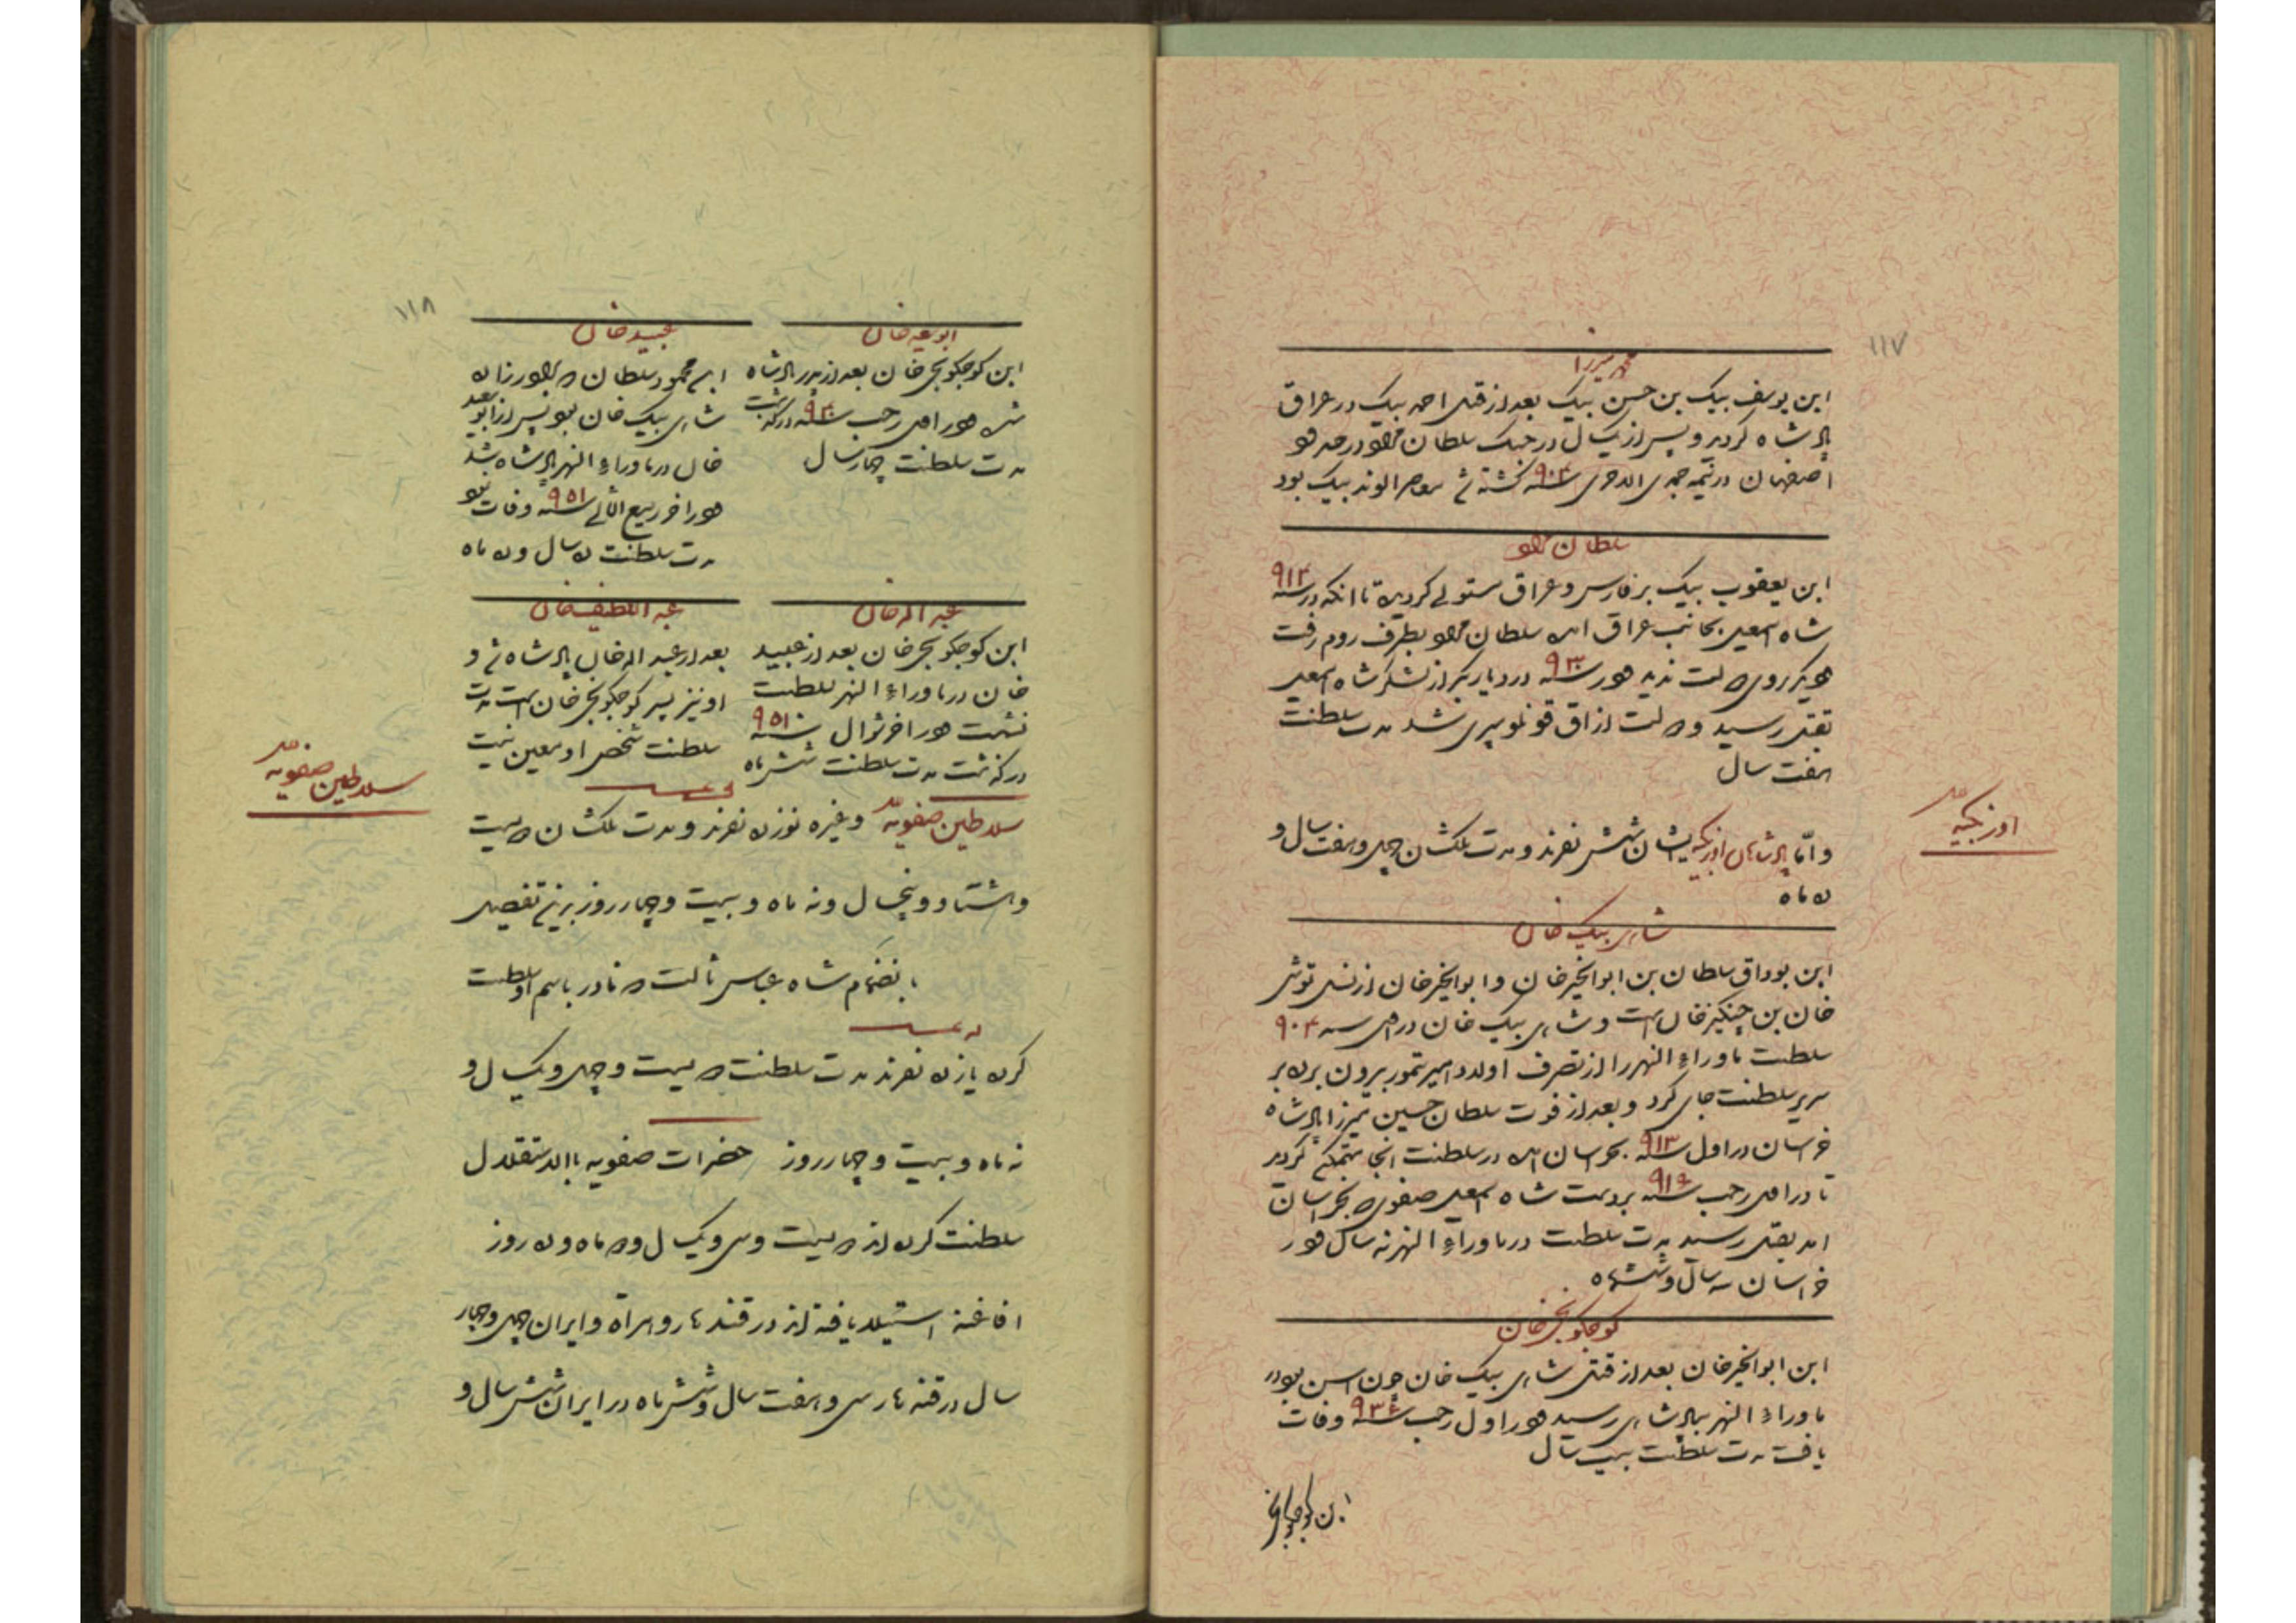 ۱۱۷
محمد میرزا
ابن یوسف بیک بن حسن بیک بعد از قتل احمد بیک در عراق
پادشاه کردید و پس از یکسال در جنک سلطان مراد در حدود
اصفهان در نیمه جمادی الاخری سنه ۹۰۴ کشته شد معاصر الوند بیک بود
سلطان مراد
ابن یعقوب بیک بر فارس و عراق مستولی کردیده تا انکه در سنه ۹۱۳
شاه اسمعیل بجانب عراق امده سلطان مراد بطرف روم رفت
دیکر روی دولت ندید و در سنه ۹۳۰ در دیاربکر از لشکر شاه اسمعیل
بقتل رسید و دولت از اق قونلو سپری شد مدت سلطنت
هفت سال
اوزبکیه
و امّا پادشاهان اوزبکیه ایشان شش نفرند و مدت ملکشان چهل و هفت سال و
ده ماه
شاهی بیک خان
ابن بوداق سلطان بن ابوالخیر خان و ابوالخیر خان از نسل توشی
خان بن چنکیز خان است و شاهی بیک خان در سنه ۹۰۴
سلطنت ماوراء النهر را از تصرف اولاد امیر تیمور بیرون برده بر
سریر سلطنت جای کرد و بعد از فوت سلطان حسین میرزا پادشاه
خراسان در اول سنه ۹۱۳ بخراسان امده در سلطنت انجا متمکن کردید
تا در رجب سنه ۹۱۶ بر دست شاه اسمعیل صفوی که بخراسان
امد بقتل رسید مدت سلطنت در ماوراء النهر نه سال و در
خراسان سه سال و ششماه
کوچکونجی خان
ابن ابوالخیر خان بعد از قتل شاهی بیک خان چون اسن بود در
ماوراء النهر بپادشاهی رسید و در اول رجب سنه ۹۳۶ وفات
یافت مدت سلطنت بیست سال
ابن کوچکونجی
۱۱۸
ابوسعید خان
ابن کوچکونجی خان بعد از پدر پادشاه
شد و در رجب سنه ۹۴۰ درکذشت
مدت سلطنت چهار سال
عبید خان
ابن محمود سلطان که برادر زاده
شاهی بیک خان بود پس از ابوسعید
خان در ماوراء النهر پادشاه شد
و در اخر ربیع الثانی سنه ۹۵۱ وفات نمود
مدت سلطنت ده سال و ده ماه
عبد الله خان
ابن کوچکونجی خان بعد از عبید
خان در ماوراء النهر بسلطنت
نشست و در اخر شوال سنه ۹۵۱
درکذشت مدت سلطنت ششماه
عبد اللطیف خان
بعد از عبد الله خان پادشاه شد و
او نیز پسر کوچکونجی خان است مدت
سلطنت شخص او معین نیست
سلاطین صفویه
سلاطین صفویه و غیره نوزده نفرند و مدت ملکشان دویست
و هشتاد و پنجسال و نه ماه و بیست و چهار روز بر این تفصیل
بانضمام شاه عباس ثالث که نادر باسم او سلطنت
کرده یازده نفرند مدت سلطنت دویست و چهل و یکسال و
نه ماه و بیست و چهار روز حضرات صفویه بالاستقلال
سلطنت کرده اند دویست و سی و یکسال و دو ماه و ده روز
افاغنه استیلا یافته اند در قندهار و هراة و ایران چهل و چهار
سال در قندهار سی و هفت سال و شش ماه در ایران شش سال و